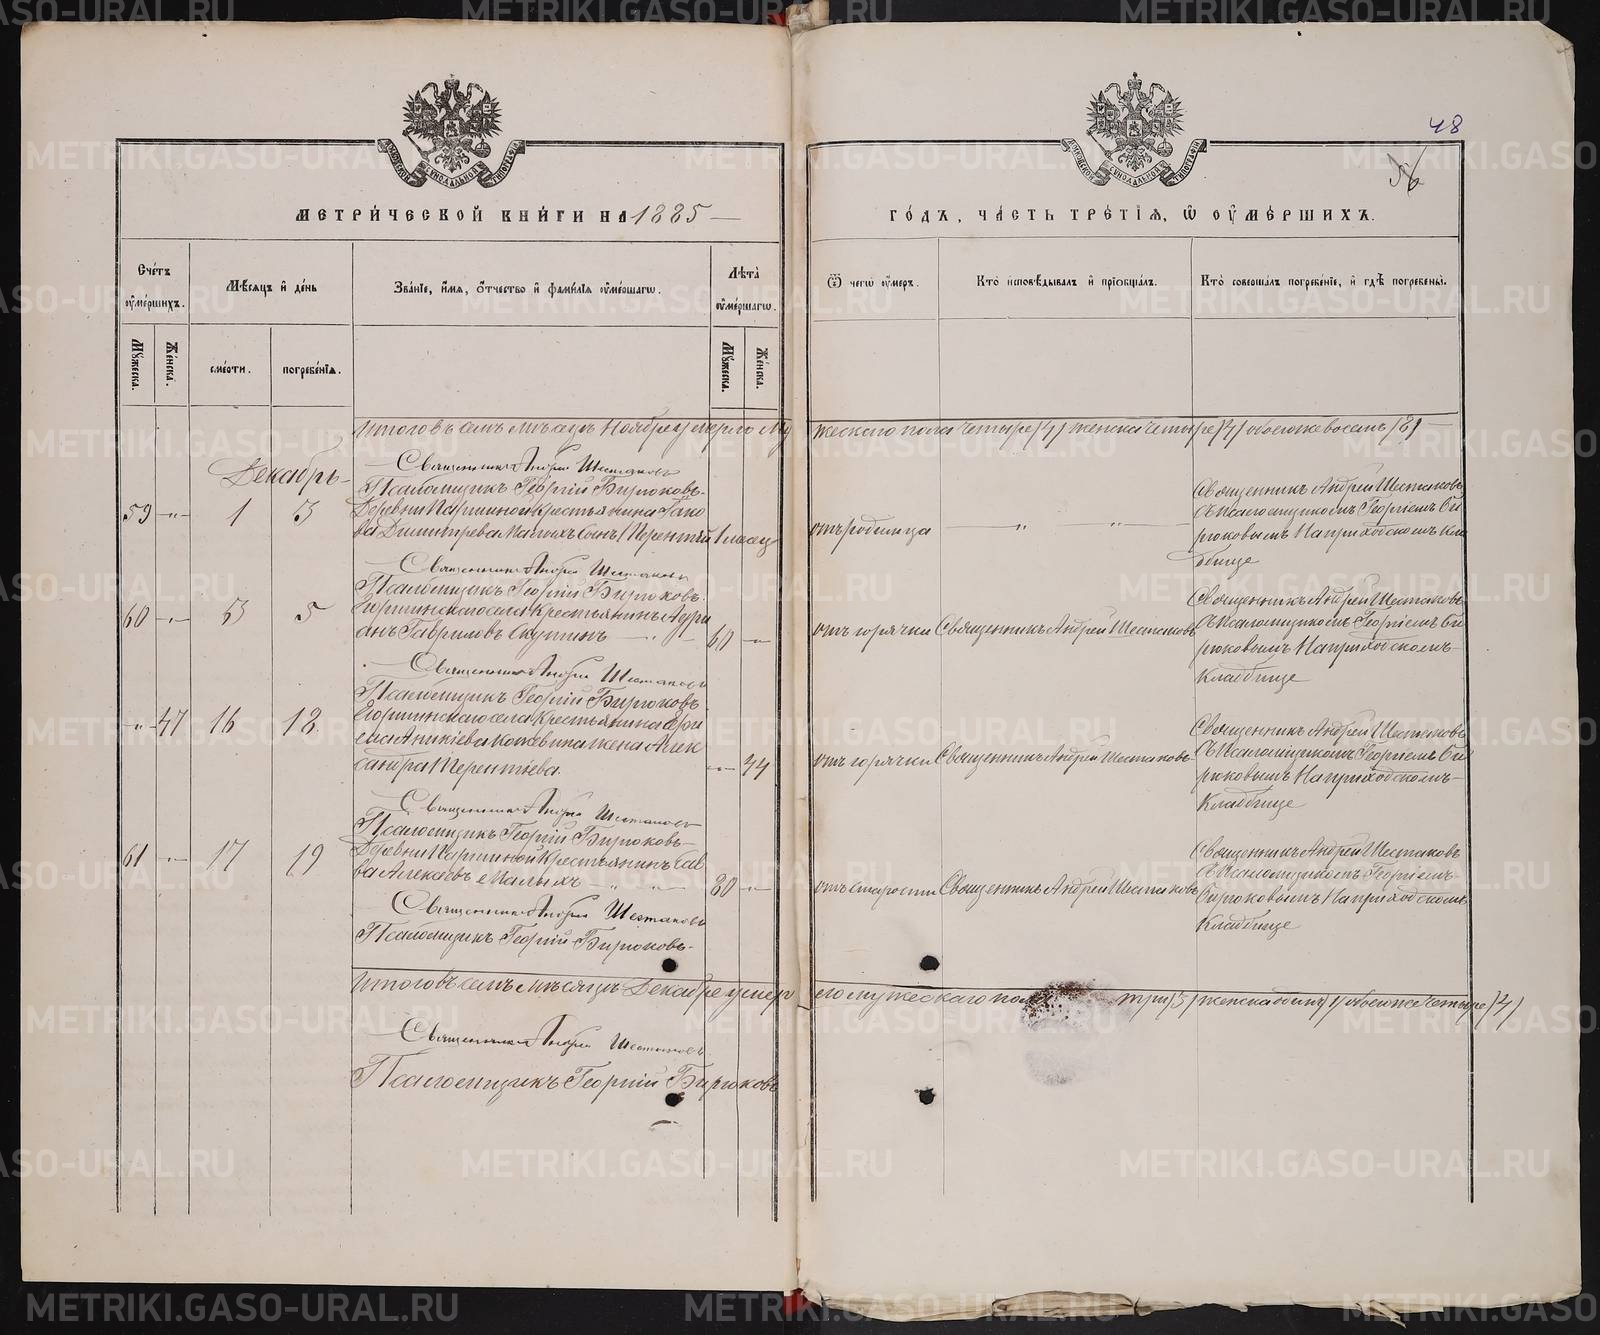 48
56
МЕТРИ́ЧЕСКОЙ КНИ́ГИ НА 1885
ГО́ДЪ, ЧА́СТЬ ТРЕ́ТІѦ, Ѿ ОУ҆МЕ́РШИХЪ.
МОСКОВСКОЙ СѴНОДАЛЬНОЙ ТИПОГРАФІИ
МОСКОВСКОЙ СѴНОДАЛЬНОЙ ТИПОГРАФІИ
Сче́тъ оу҆ме́ршихъ.
Мѣсяцъ и҆ де́нь
Зва́нїе, и҆́мя, о҆́тчество и҆ фами́лїя оу҆ме́ршагѡ.
Лѣта̀ оу҆ме́ршагѡ.
Ѿ чегѡ̀ оу҆́меръ.
Кто̀ и҆сповѣ́дывалъ и҆ прїѡбща́лъ.
Кто̀ соверша́лъ погребе́нїе, и҆ гдѣ̀ погребены̀.
Мꙋ́жеска.
Же́нска.
сме́рти.
погребе́нїя.
Мꙋ́жеска.
Же́нска.
Итого въ семъ мѣсяцѣ Ноябрѣ умерло му
жескаго пола четыре /4/ женска четыре /4/ обоего же восемь /8/
Священникъ Андрей Шестаковъ
Декабрь
Псаломщикъ Георгій Бирюковъ
59 1 3
Деревни Паршиной крестьянина Яко
ва Димитрева Малыхъ сынъ Терентій 1 месяц
отъ родимца
Священникъ Андрей Шестаковъ
съ Псаломщикомъ Георгіемъ Би
рюковымъ На приходскомъ кла
дбище
Священникъ Андрей Шестаковъ
Псаломщикъ Георгій Бирюковъ
60 3 5
Егоршинскаго села Крестьянинъ Адрі
анъ Гавриловъ Скутинъ 60
отъ горячки Священникъ Андрей Шестаковъ
Священникъ Андрей Шестаковъ
съ Псаломщикомъ Георгіемъ Би
рюковымъ На приходскомъ
Кладбище
Священникъ Андрей Шестаковъ
Псаломщикъ Георгій Бирюковъ
47 16 18
Егоршинскаго села Крестьянина Ефи
ма Аникіева Кожевина жена Алек
сандра Терентіева. 44
отъ горячки Священникъ Андрей Шестаковъ
Священникъ Андрей Шестаковъ
съ Псаломщикомъ Георгіемъ Би
рюковымъ На приходскомъ
Кладбище
Священникъ Андрей Шестаковъ
Псаломщикъ Георгій Бирюковъ
61 17 19
Деревни Паршиной Крестьянинъ Сав
ва Алексѣевъ Малыхъ 80
отъ старости Священникъ Андрей Шестаковъ
Священникъ Андрей Шестаковъ
съ Псаломщикомъ Георгіемъ
Бирюковымъ На приходскомъ
Кладбище
Священникъ Андрей Шестаковъ
Псаломщикъ Георгій Бирюковъ
Итого въ семъ мѣсяцѣ Декабрѣ умер
ло мужескаго пола три /3/ женска одинъ /1/ обоего же четыре /4/
Священникъ Андрей Шестаковъ
Псаломщикъ Георгій Бирюковъ
METRIKI.GASO-URAL.RU